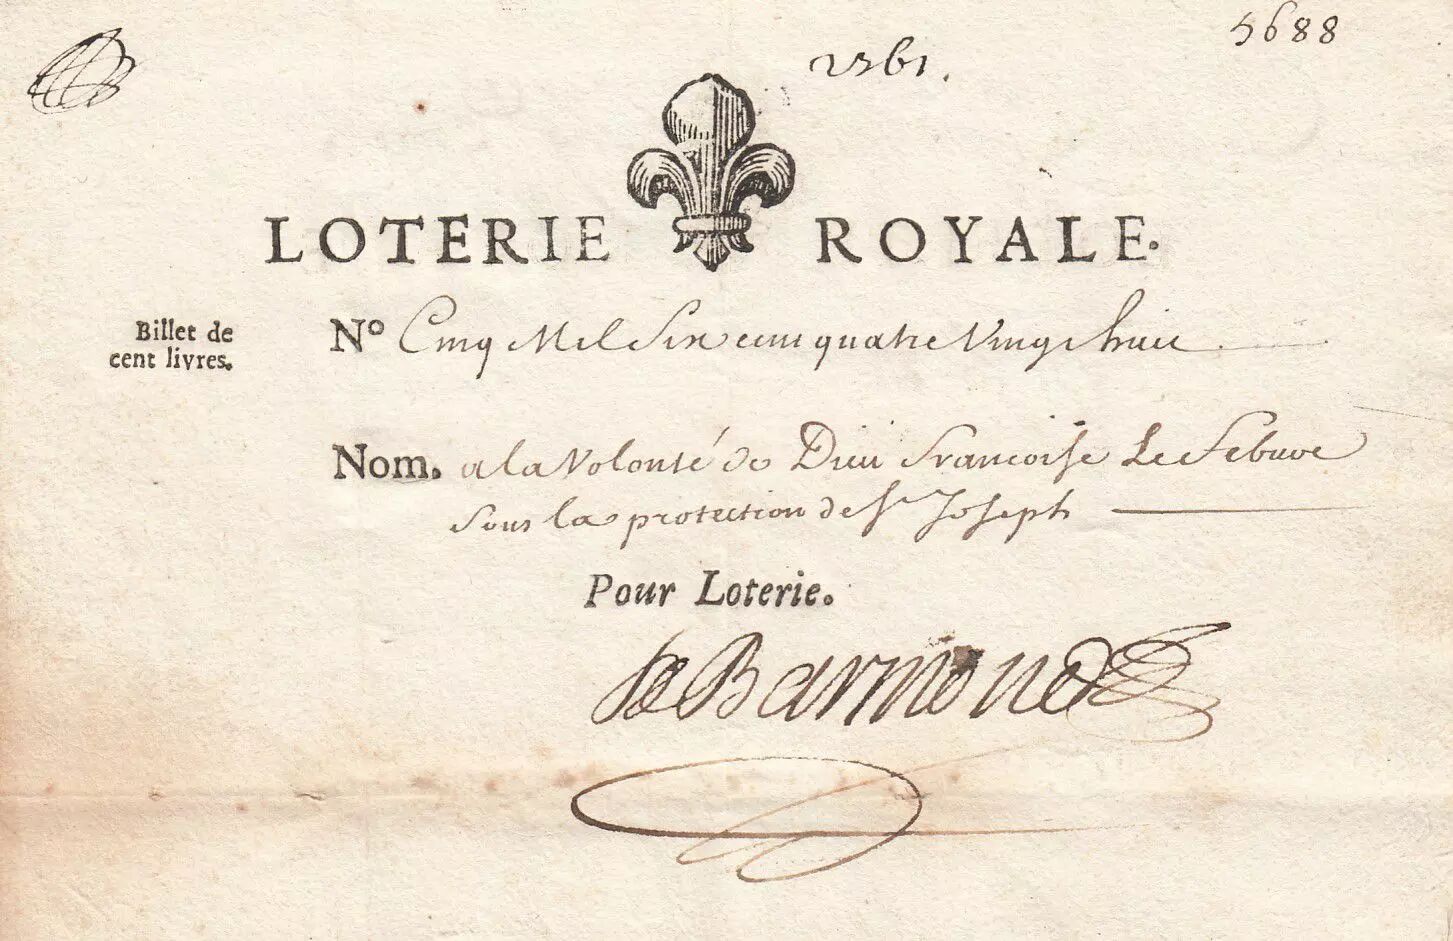 5688
LOTERIE ROYALE.
Billet de
cent livres.
Nº Cinq Mil Six cent quatre Vingt huit
Nom. a la Volonté de Dieu francoise Le febuve
Sous la protection de St Joseph
Pour Loterie.
de Barmond